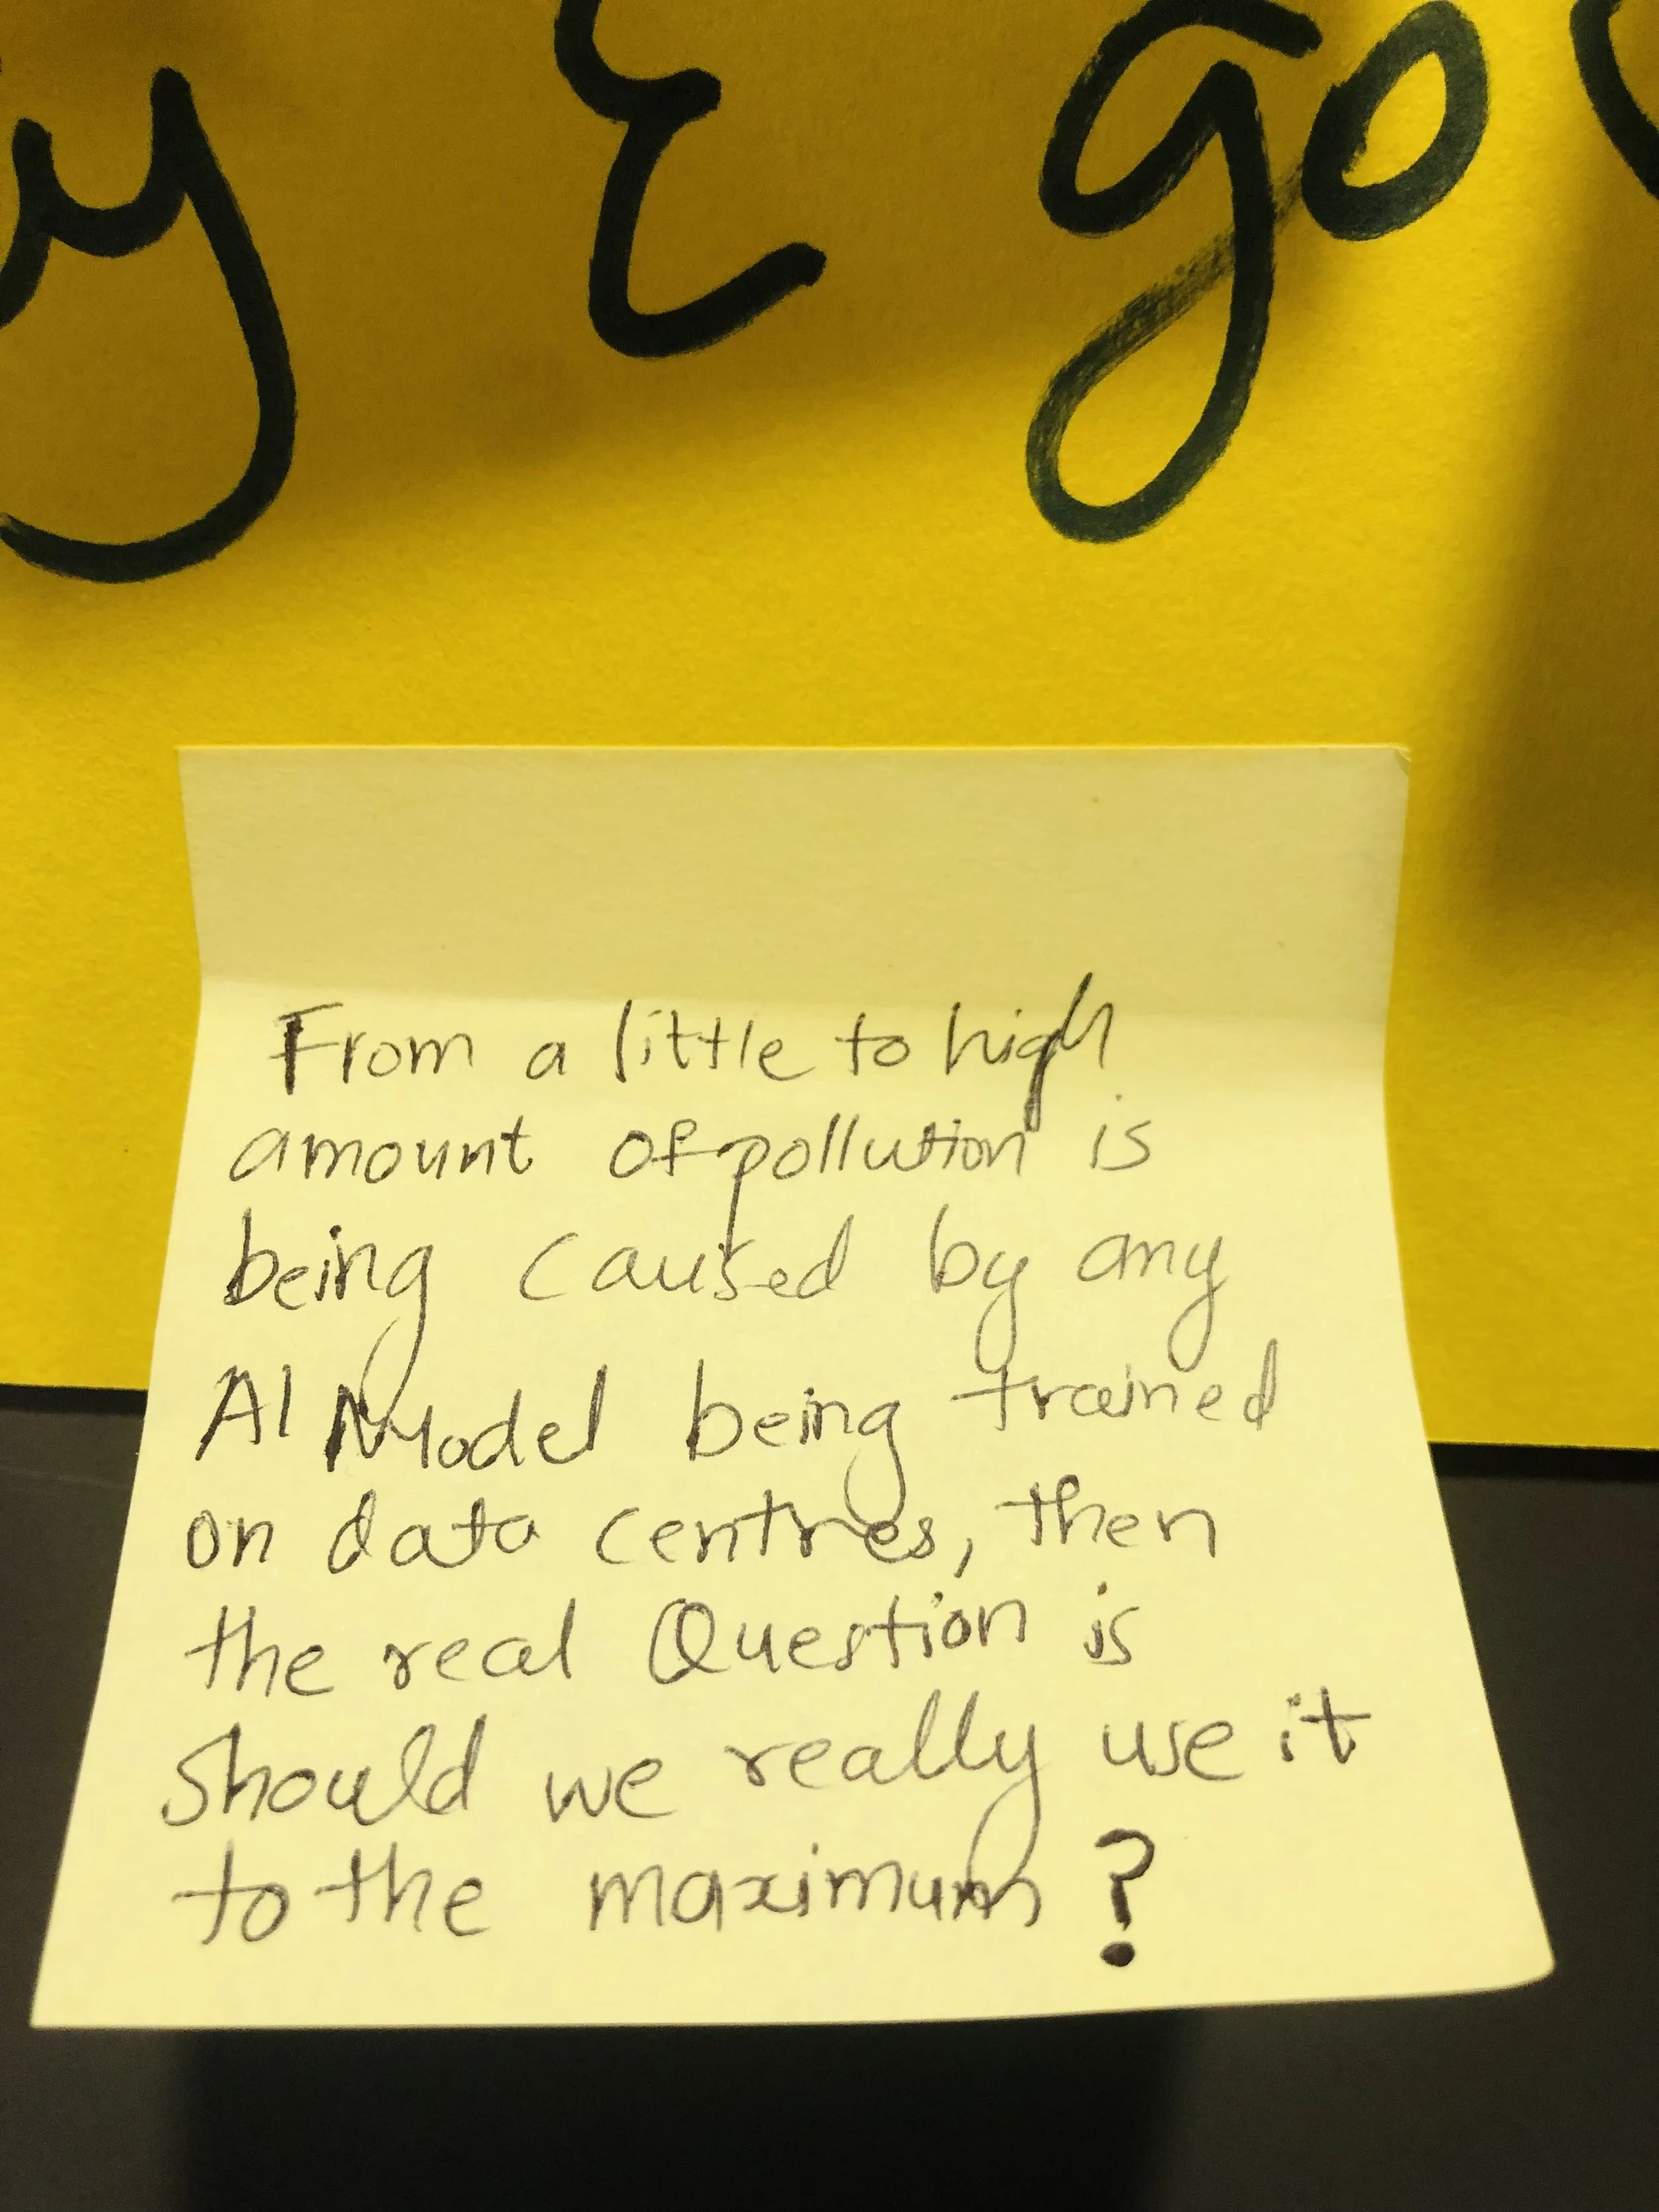 y & go
From a little to high
amount of pollution is
being caused by any
AI Model being trained
on data centres, then
the real Question is
should we really use it
to the maximum?